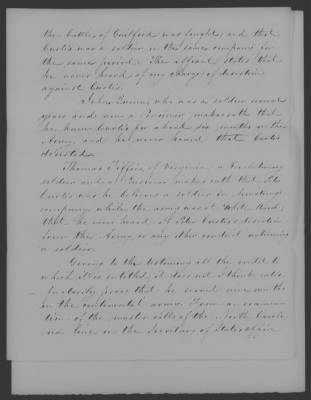 the Battles of Guilford was fought, and that
Curtis was a soldier in the same company for
the same period. The affiant states that
he never heard of any charge of desertion
against Curtis.
John Burns, who was a soldier several
years and now a Pensioner maketh oath that
he knew Curtis for about six months in the
Army, and he never heard that Curtis
deserted.
Thomas Tiffin, of Virginia, a Revolutionary
soldier and a Pensioner makes oath that
Curtis was he believes a soldier in
company while the army was at White
that he never heard of Curtis's desertion
from the Army or any other conduct unbecoming
a soldier.
Giving to the testimony all the credit to
which it is entitled, it does not I think satis-
factorily prove that he served nine months
in the continental army. From a examina-
tion of the muster rolls of the North Caroli-
na line in the Secretary of State's office